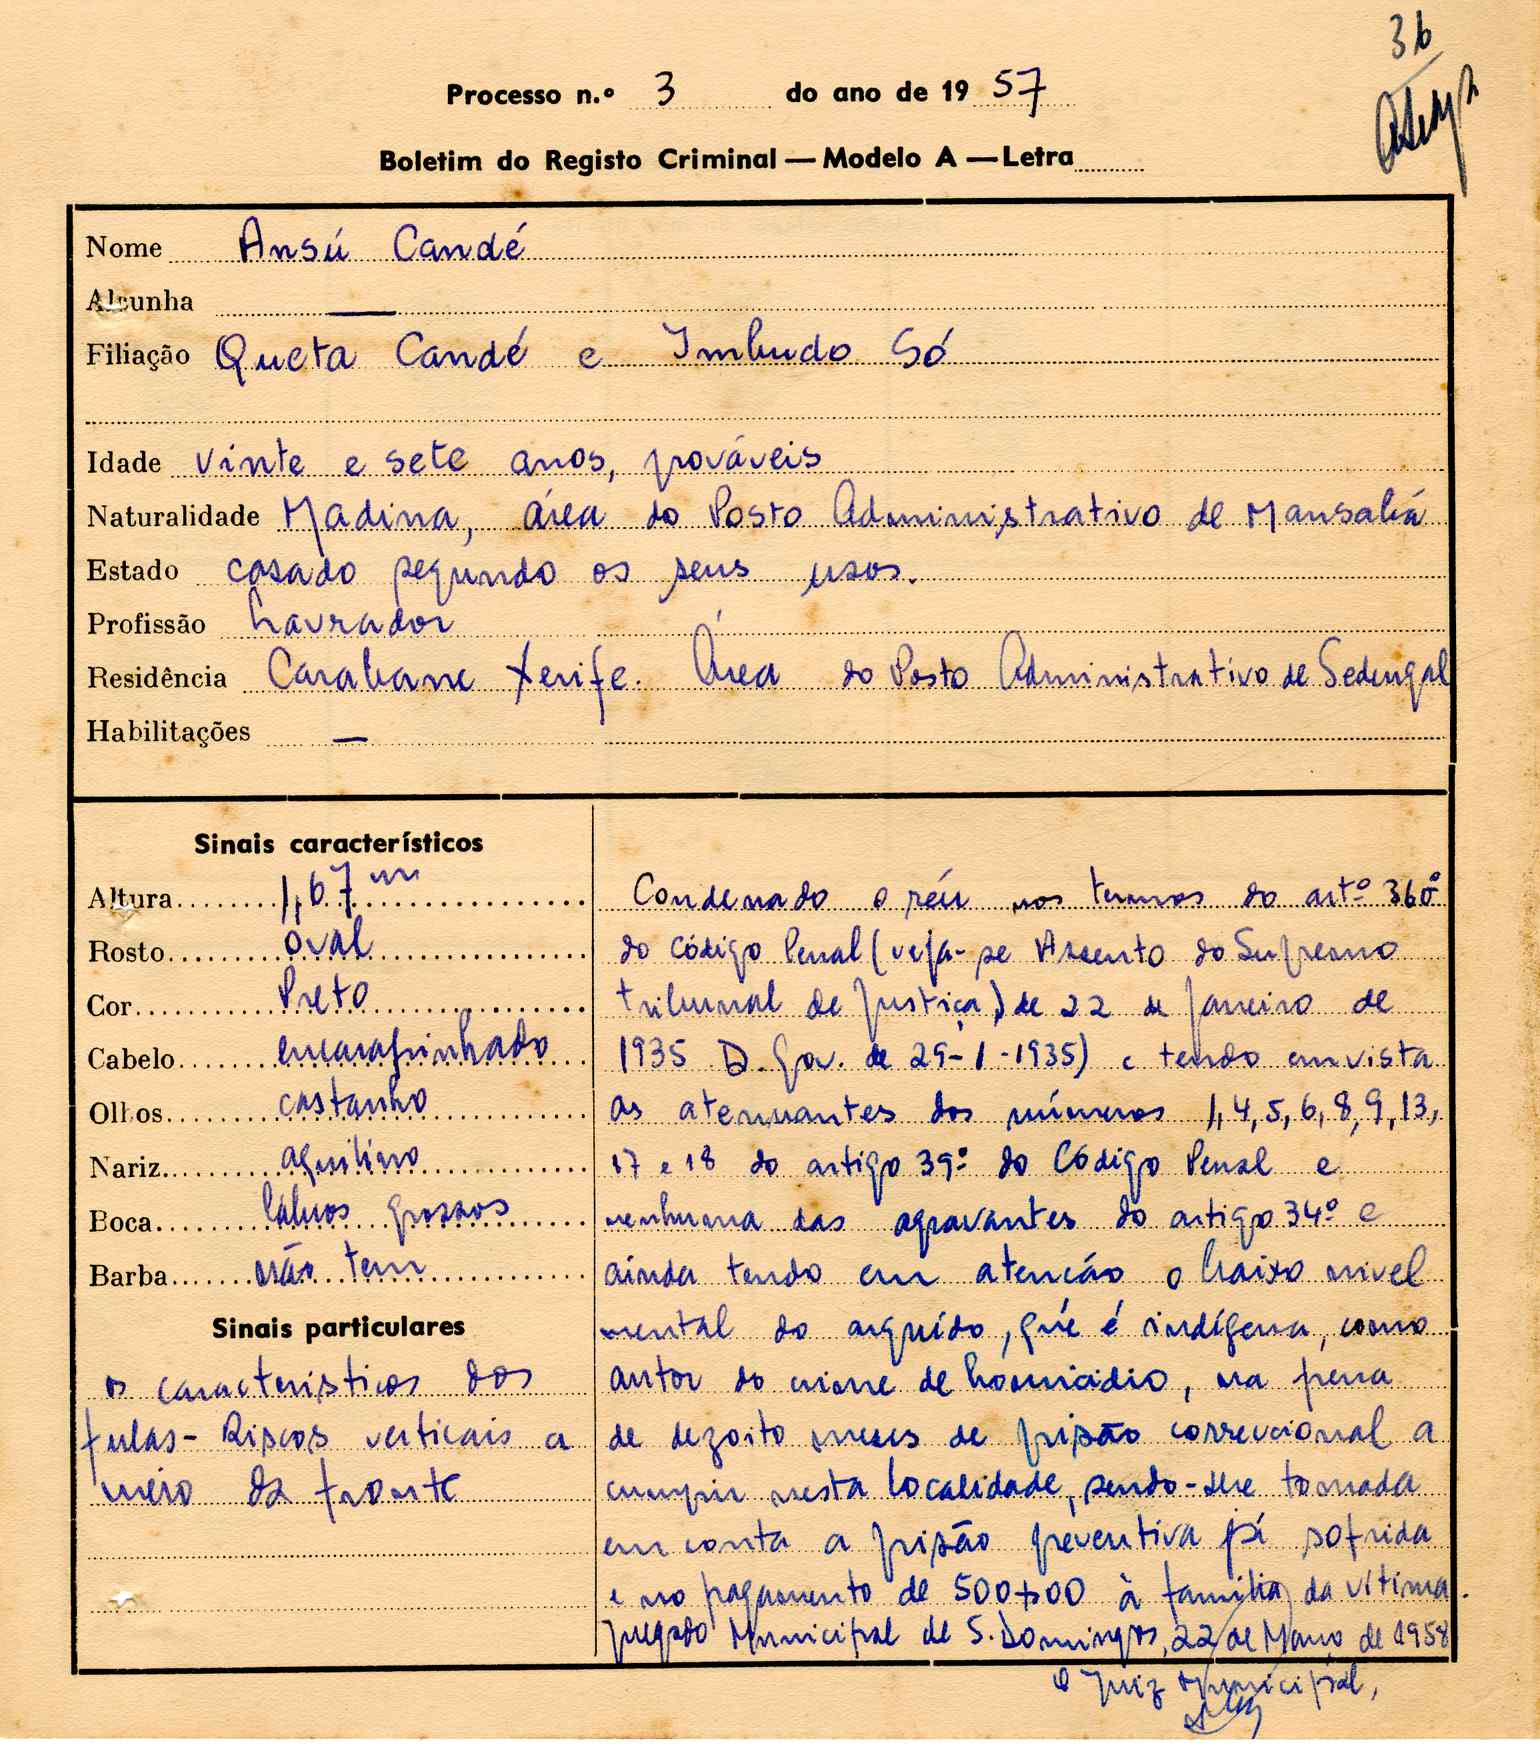 36
Processo n.º 3 do ano de 1957
Boletim do Registo Criminal — Modelo A — Letra
Nome Ansú Candé
Alcunha —
Filiação Queta Candé e Imbudo Só
Idade vinte e sete anos, prováveis
Naturalidade Madina, área do Posto Administrativo de Mansabá
Estado casado segundo os seus usos.
Profissão Lavrador
Residência Carabane Xerife. Área do Posto Administrativo de Sedengal
Habilitações —
Sinais característicos
Altura 1,67 m
Rosto oval
Cor Preto
Cabelo encarapinhado
Olhos castanho
Nariz aquilino
Boca lábios grossos
Barba não tem
Sinais particulares
os caracteristicos dos
fulas - Riscos verticais a
meio da fronte
Condenado o réu nos termos do artº 360º
do Código Penal (veja-se Assento do Supremo
tribunal de Justiça) de 22 de Janeiro de
1935 D. Gov. de 29-1-1935) e tendo em vista
as atenuantes dos números 1, 4, 5, 6, 8, 9, 13,
17 e 18 do artigo 39º do Código Penal e
nenhuma das agravantes do artigo 34º e
ainda tendo em atencão o baixo nivel
mental do arguido, que é indígena, como
autor do crime de homicidio, na pena
de dezoito meses de prisão correccional a
cumprir nesta localidade, sendo-lhe tomada
em conta a prisão preventiva já sofrida
e no pagamento de 500$00 à familia da vítima.
Julgado Municipal de S. Domingos, 22 de de 1958
O Juiz Municipal,